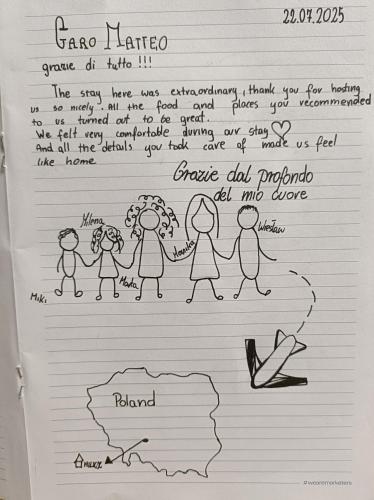 22.07.2025
GARO MATTEO
grazie di tutto !!!
The stay here was extraordinary, thank you for hosting
us so nicely. All the food and places you recommended
to us turned out to be great.
We felt very comfortable during our stay
And all the details you took care of made us feel
like home
Grazie dal profondo
del mio cuore
Milena
Wiesław
Monika
Marta
Miki
Poland
#wearemarketers